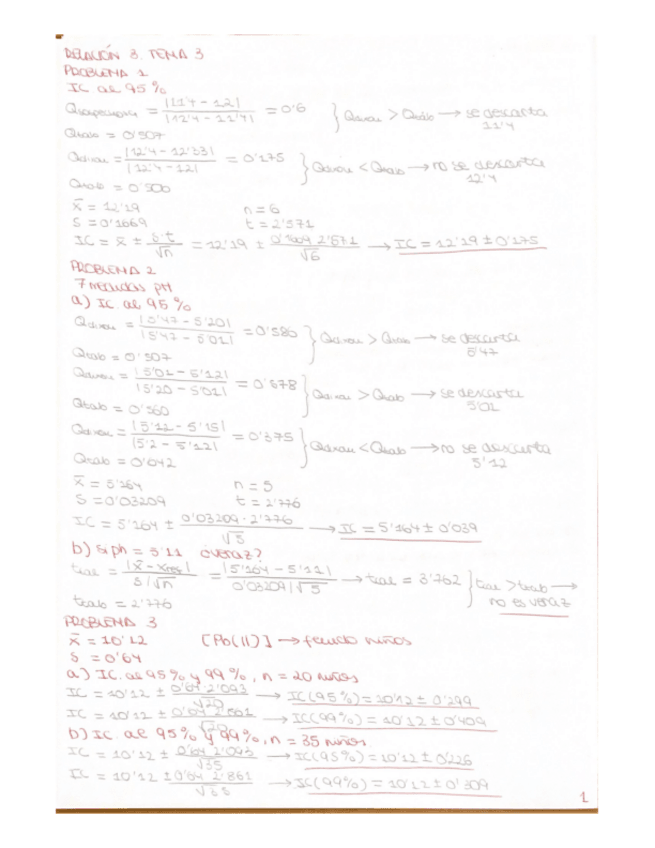 RELACIÓN 3. TEMA 3
PROBLEMA 1
IC al 95 %
Q = |11'4 - 12| / |12'4 - 11'4| = 0'6 } > Qtab → se descarta 11'4
Qtab = 0'507
= |12'4 - 12'33| / |12'4 - 12| = 0'175 } < Qtab → no se descarta 12'4
Qtab = 0'560
x̄ = 12'19 n = 6
S = 0'1669 t = 2'571
IC = x̄ ± s·t / √n = 12'19 ± / √6 → IC = 12'19 ± 0'175
PROBLEMA 2
7 medidas pH
a) IC al 95 %
= |5'47 - 5'20| / |5'47 - 5'01| = 0'586 } > Qtab → se descarta 5'47
Qtab = 0'507
= |5'01 - 5'12| / |5'20 - 5'01| = 0'578 } > Qtab → se descarta 5'01
Qtab = 0'560
= |5'12 - 5'15| / |5'2 - 5'12| = 0'375 } < Qtab → no se descarta 5'12
Qtab = 0'642
n = 5
S = 0'03209 t = 2'776
0'03209 · 2'776 / √5 → IC = 5'164 ± 0'039
b) si ph = 5'11 ¿veraz?
tcal = / s/√n = |5'164 - 5'11| / 0'03209/√5 → tcal = 3'762 } tcal > ttab → no es veraz
ttab = 2'776
PROBLEMA 3
x̄ = 10'12 [Pb(II)] → niños
S = 0'64
a) IC al 95 % y 99 %, n = 20 niños
IC = 10'12 ± 0'64·2'093 / √20 → IC(95%) = 10'12 ± 0'299
IC = 10'12 ± / √20 → IC(99%) = 10'12 ± 0'409
b) IC al 95 % y 99 %, n = 35 niños
IC = 10'12 ± 0'64·2'093 / √35 → IC(95%) = 10'12 ± 0'226
IC = 10'12 ± 0'64·2'861 / √35 → IC(99%) = 10'12 ± 0'309
1